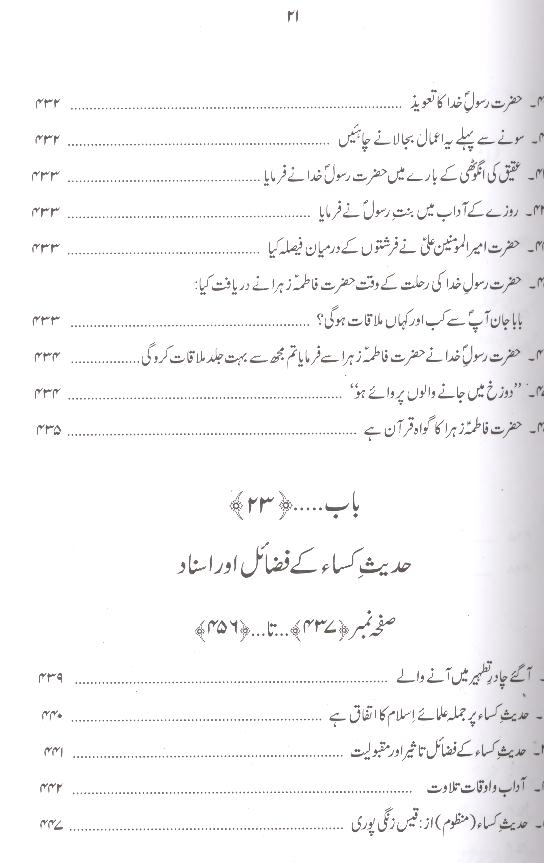 ۲۱
۴۔ حضرت رسولِؐ خدا کا تعویذ ........ ۴۳۲
۴۔ سونے سے پہلے یہ اعمال بجالانے چاہئیں ........ ۴۳۲
۴۔ عقیق کی انگوٹھی کے بارے میں حضرت رسولِؐ خدا نے فرمایا ........ ۴۳۳
۴۔ روزے کے آداب میں بنتِ رسولؐ نے فرمایا ........ ۴۳۳
۴۔ حضرت امیر المومنین علیؑ نے فرشتوں کے درمیان فیصلہ کیا ........ ۴۳۳
۴۔ حضرت رسولِ خدا کی رحلت کے وقت حضرت فاطمہؑ زہرا نے دریافت کیا:
بابا جان آپؐ سے کب اور کہاں ملاقات ہوگی؟ ........ ۴۳۳
۴۔ حضرت رسولِ خدا نے حضرت فاطمہؑ زہرا سے فرمایا تم مجھ سے بہت جلد ملاقات کروگی ........ ۴۳۴
۴۔ ”دوزخ میں جانے والوں پر وائے ہو“ ........ ۴۳۴
۴۔ حضرت فاطمہؑ زہرا کا گواہ قرآن ہے ........ ۴۳۵
باب.....﴿۲۳﴾
حدیثِ کساء کے فضائل اور اسناد
صفحہ نمبر ﴿۴۳۷﴾...تا...﴿۴۵۶﴾
۔ آگئے چادرِ تطہیر میں آنے والے ........ ۴۳۹
۔ حدیثِ کساء پر جملہ علمائے اِسلام کا اتفاق ہے ........ ۴۴۰
۔ حدیثِ کساء کے فضائل تاثیر اور مقبولیت ........ ۴۴۱
۔ آداب و اوقات تلاوت ........ ۴۴۲
۔ حدیثِ کساء (منظوم) از: قیس زنگی پوری ........ ۴۴۷